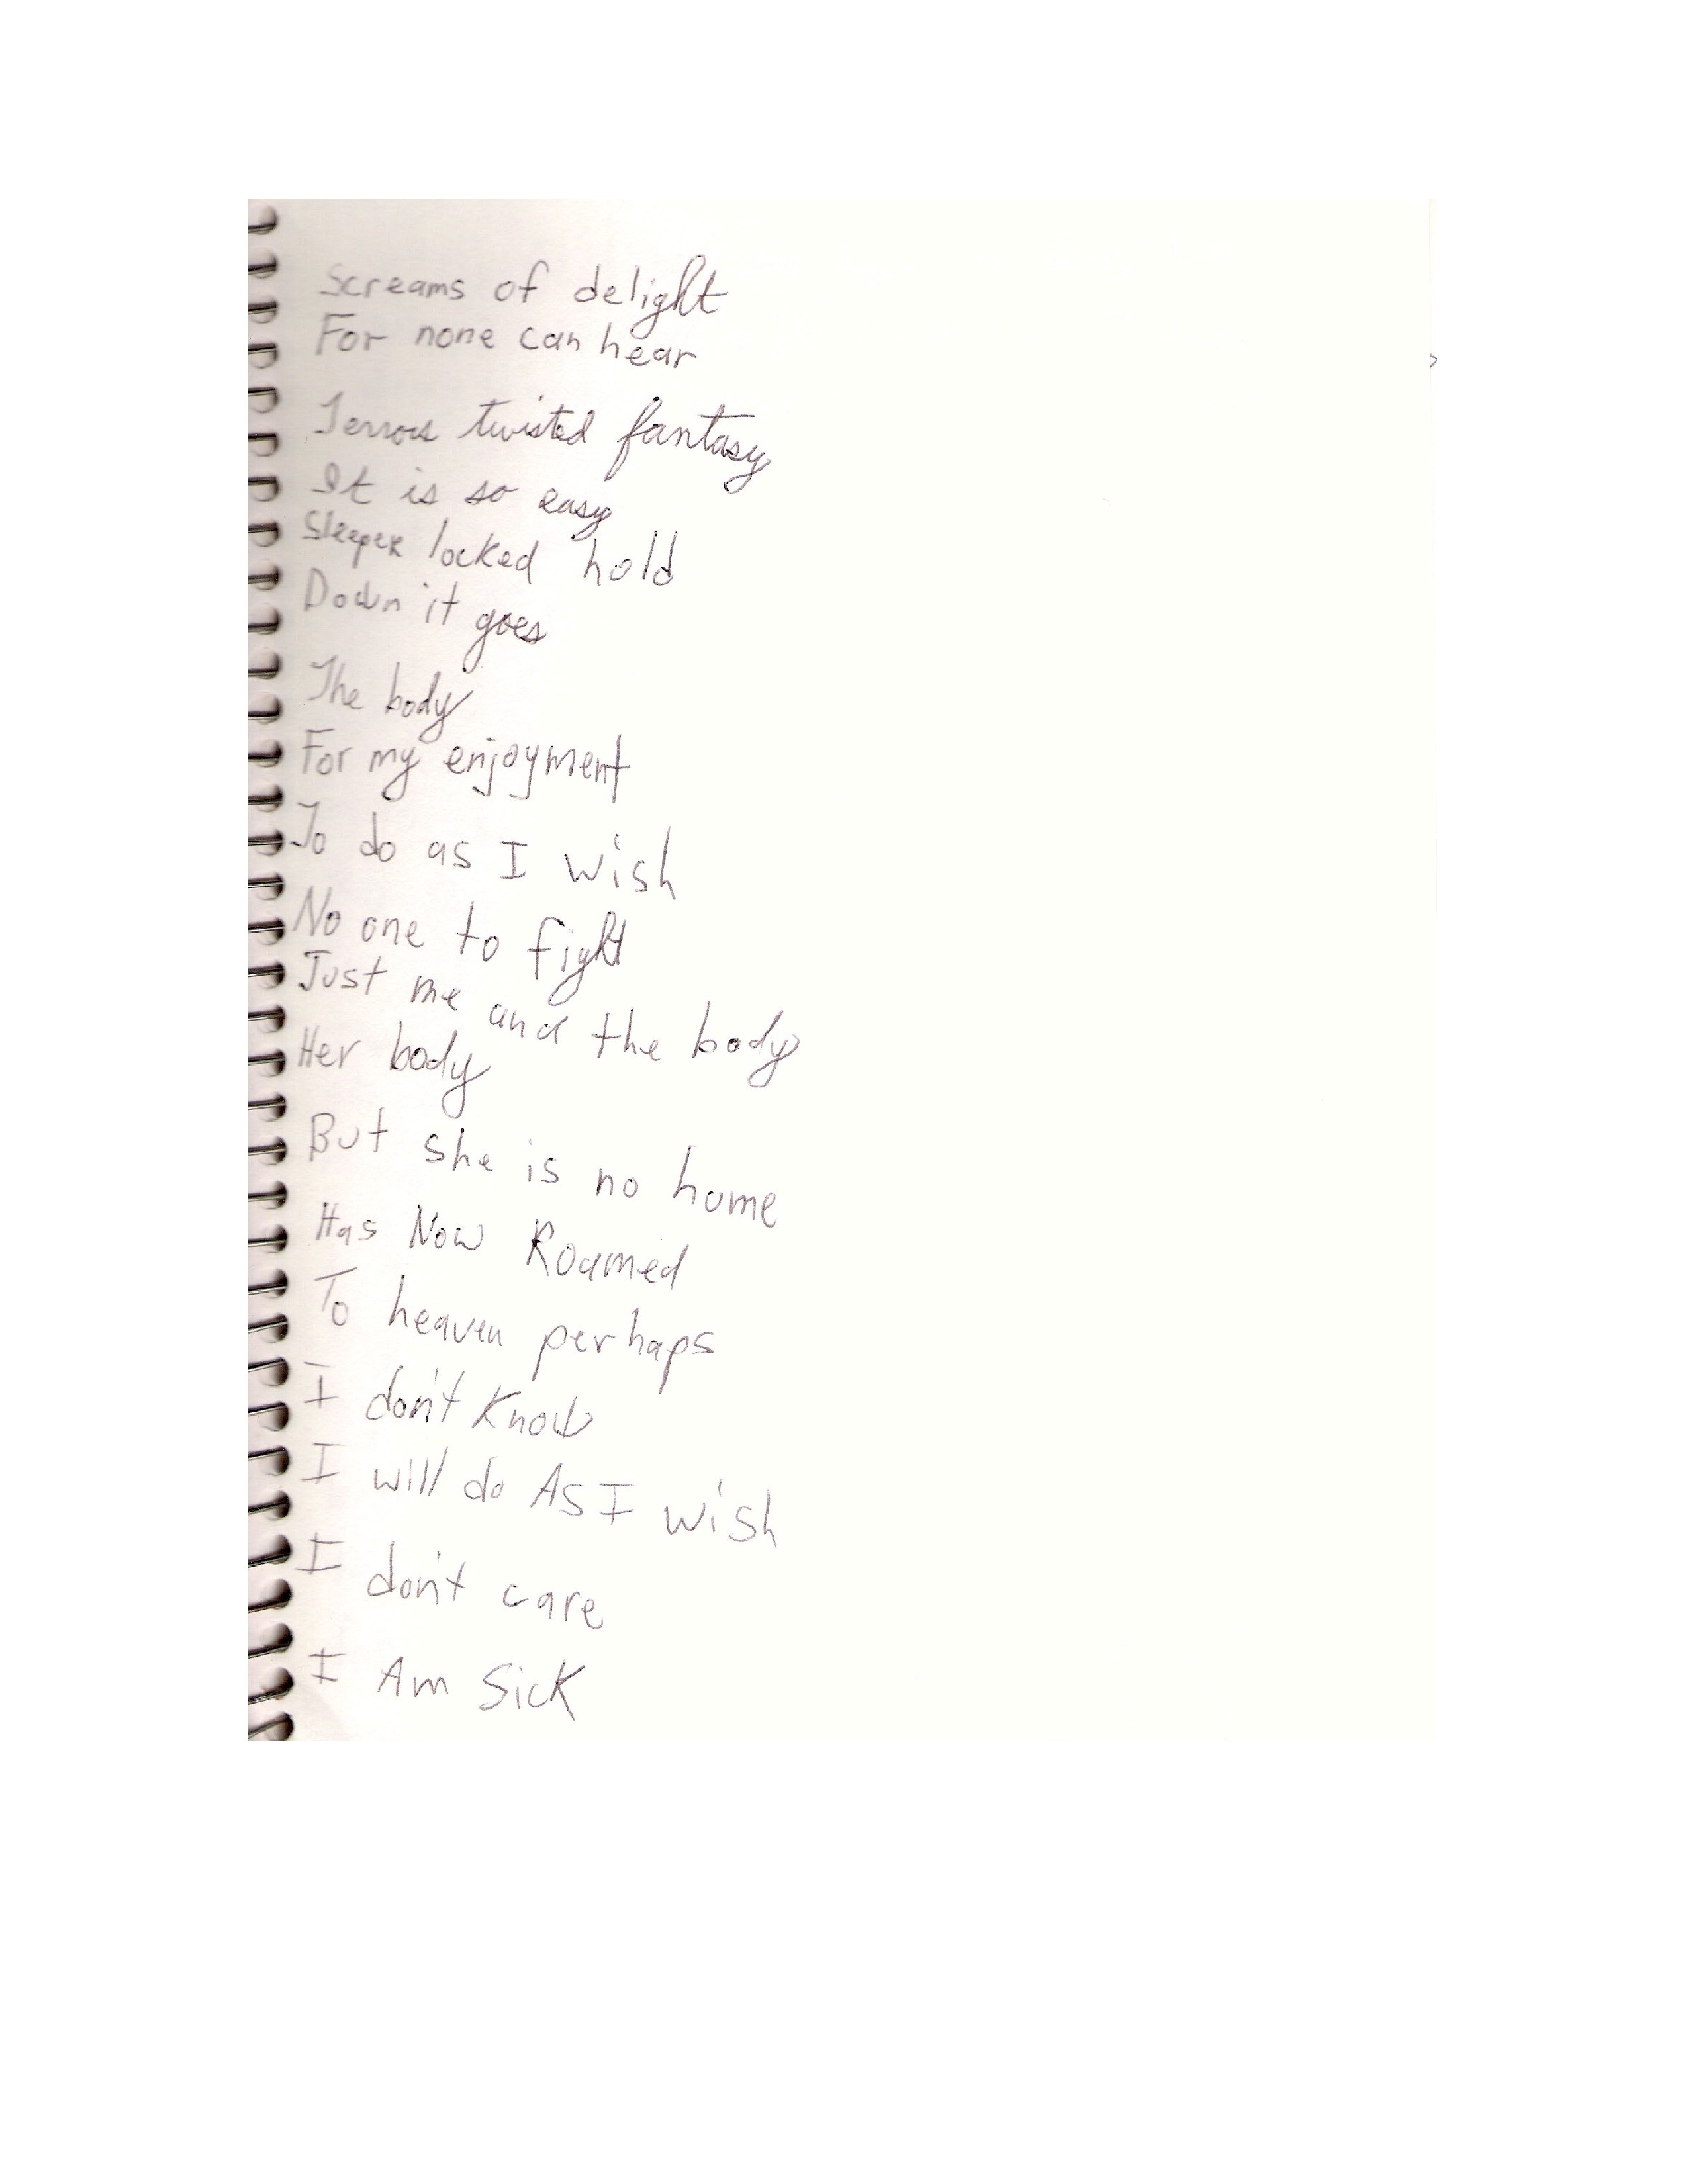 Screams of delight
For none can hear
Terrors twisted fantasy
It is so easy
Sleeper locked hold
Down it goes
The body
For my enjoyment
To do as I wish
No one to fight
Just me and the body
Her body
But she is no home
Has Now Roamed
To heaven perhaps
I don't know
I will do As I wish
I don't care
I Am Sick